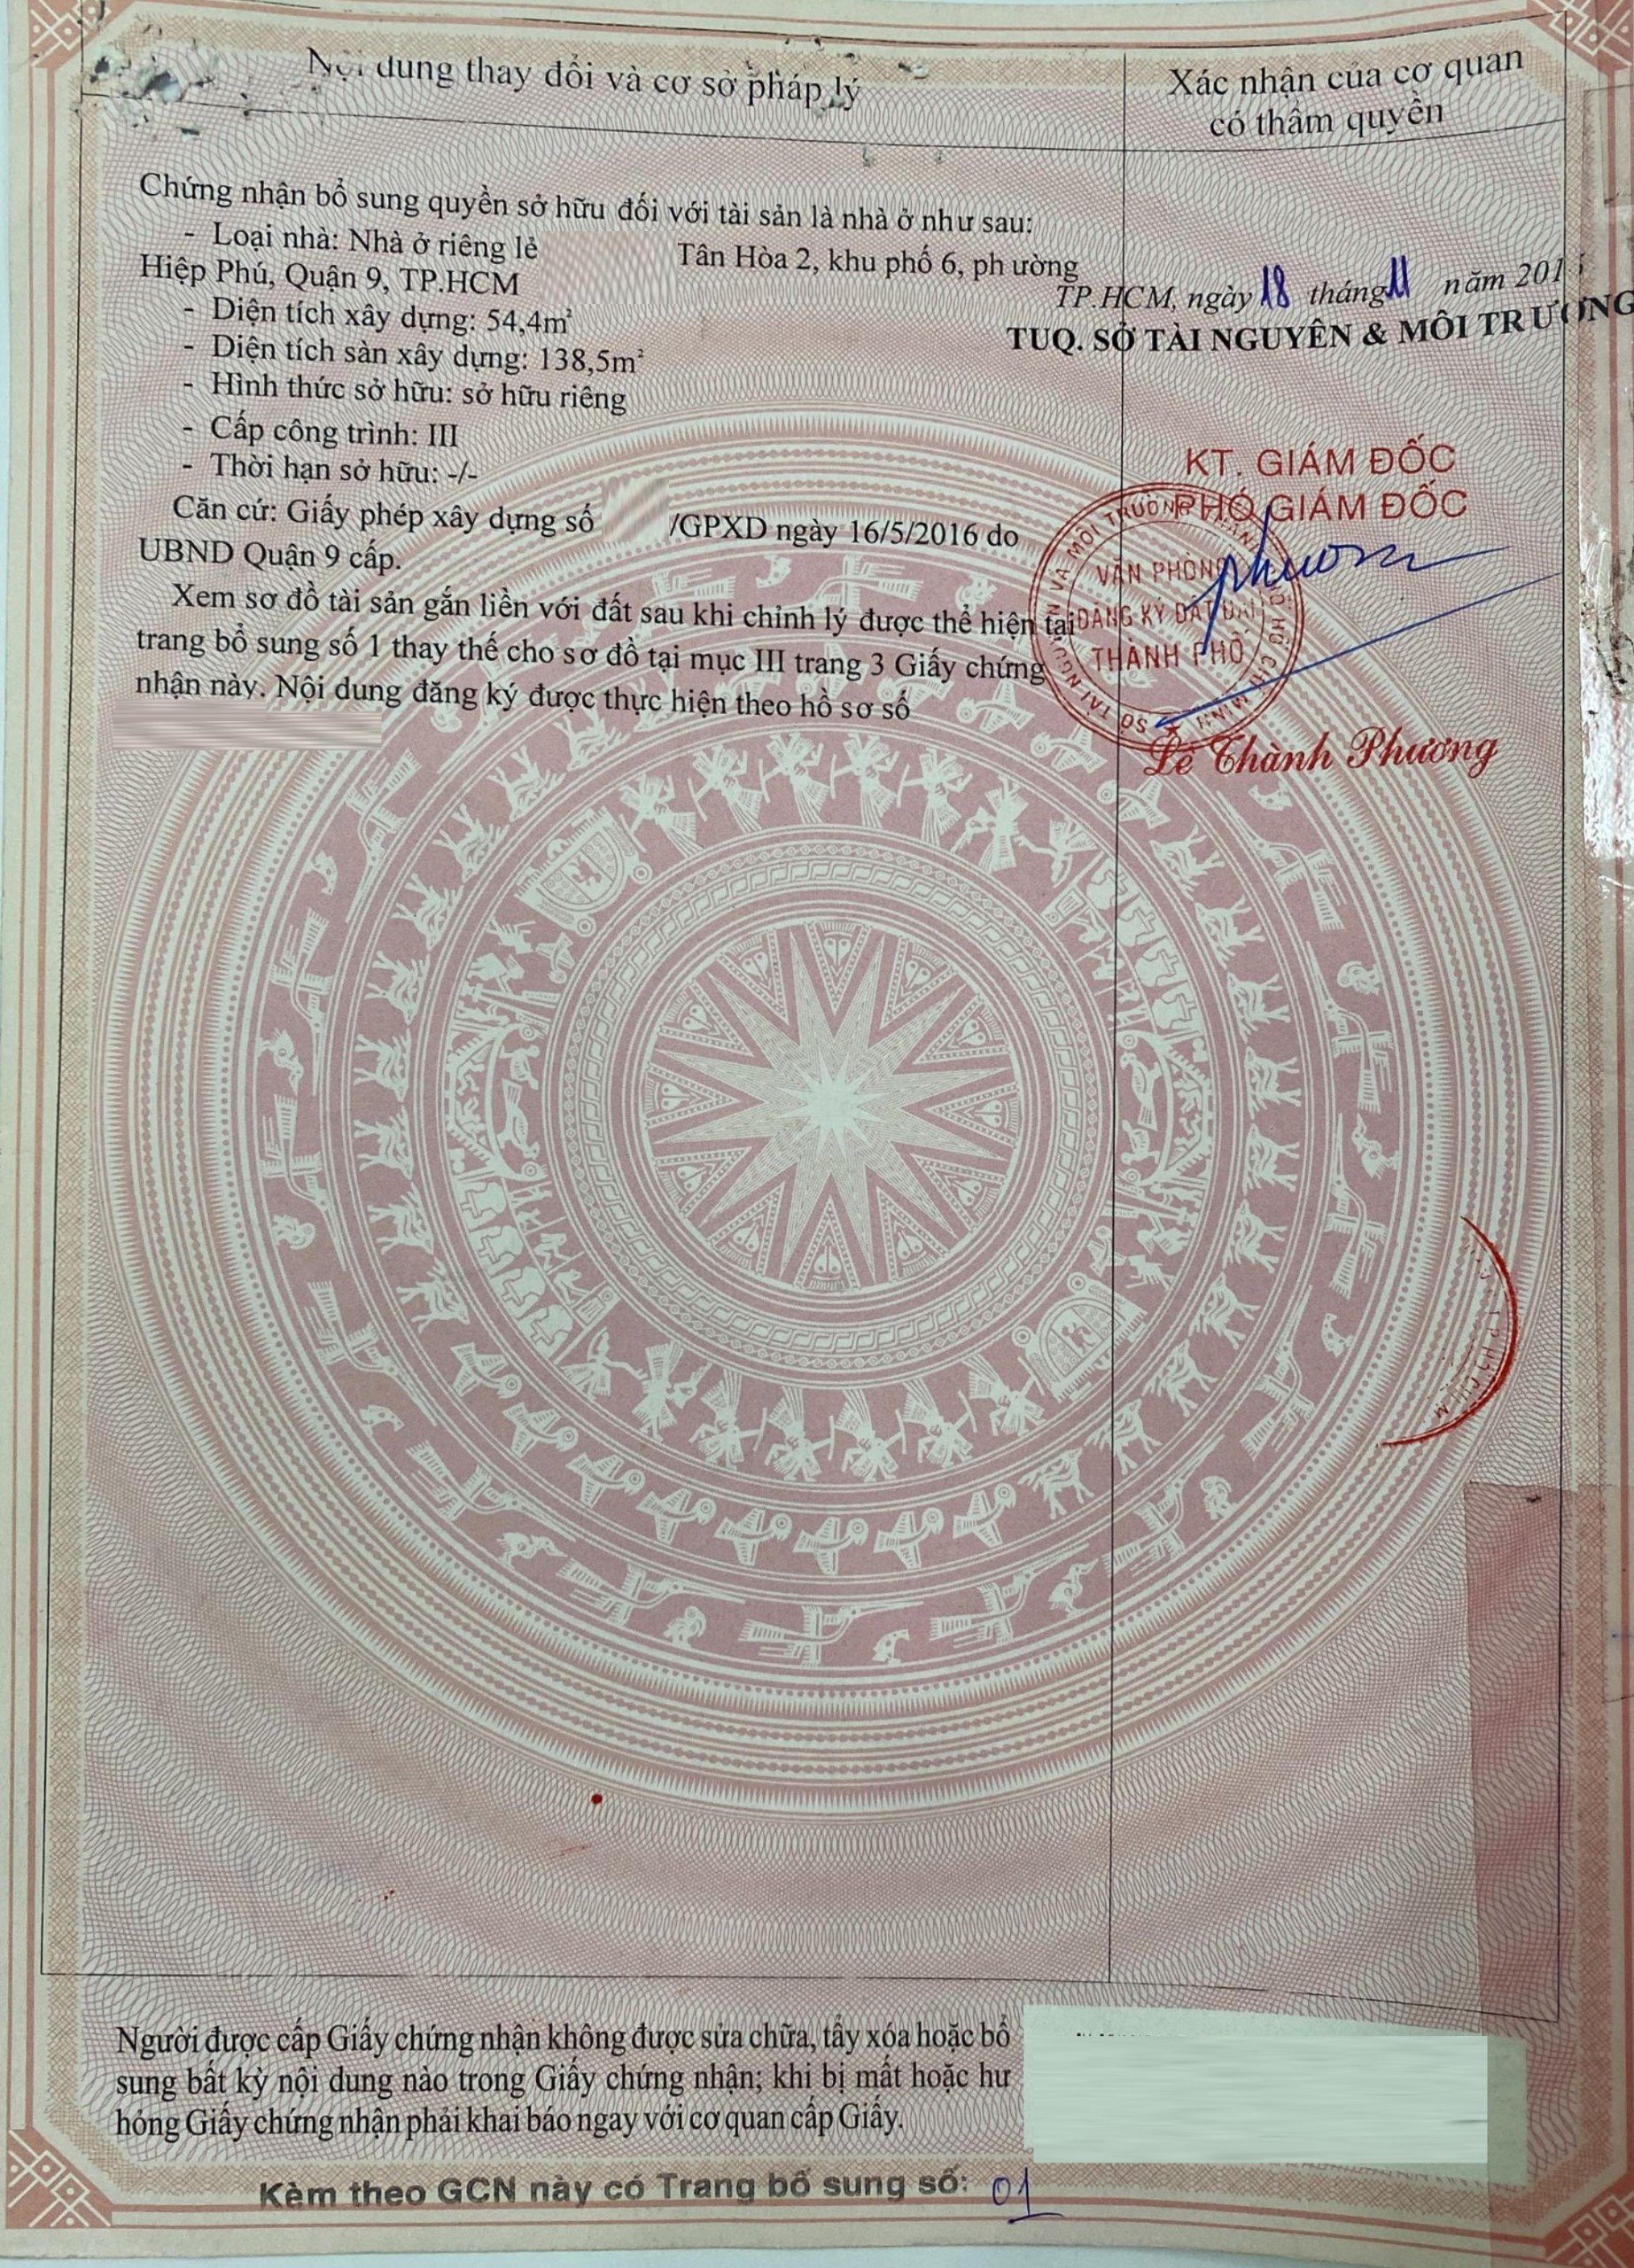 Nội dung thay đổi và cơ sở pháp lý
Xác nhận của cơ quan
có thẩm quyền
Chứng nhận bổ sung quyền sở hữu đối với tài sản là nhà ở như sau:
- Loại nhà: Nhà ở riêng lẻ Tân Hòa 2, khu phố 6, phường
Hiệp Phú, Quận 9, TP.HCM
- Diện tích xây dựng: 54,4m²
- Diện tích sàn xây dựng: 138,5m²
- Hình thức sở hữu: sở hữu riêng
- Cấp công trình: III
- Thời hạn sở hữu: -/-
Căn cứ: Giấy phép xây dựng số /GPXD ngày 16/5/2016 do
UBND Quận 9 cấp.
Xem sơ đồ tài sản gắn liền với đất sau khi chỉnh lý được thể hiện tại
trang bổ sung số 1 thay thế cho sơ đồ tại mục III trang 3 Giấy chứng
nhận này. Nội dung đăng ký được thực hiện theo hồ sơ số
TP.HCM, ngày 18 tháng 11 năm 201
TUQ. SỞ TÀI NGUYÊN & MÔI TRƯỜNG
KT. GIÁM ĐỐC
PHÓ GIÁM ĐỐC
VĂN PHÒNG
ĐĂNG KÝ ĐẤT ĐAI
THÀNH PHỐ
Lê Thành Phương
Người được cấp Giấy chứng nhận không được sửa chữa, tẩy xóa hoặc bổ
sung bất kỳ nội dung nào trong Giấy chứng nhận; khi bị mất hoặc hư
hỏng Giấy chứng nhận phải khai báo ngay với cơ quan cấp Giấy.
Kèm theo GCN này có Trang bổ sung số: 01